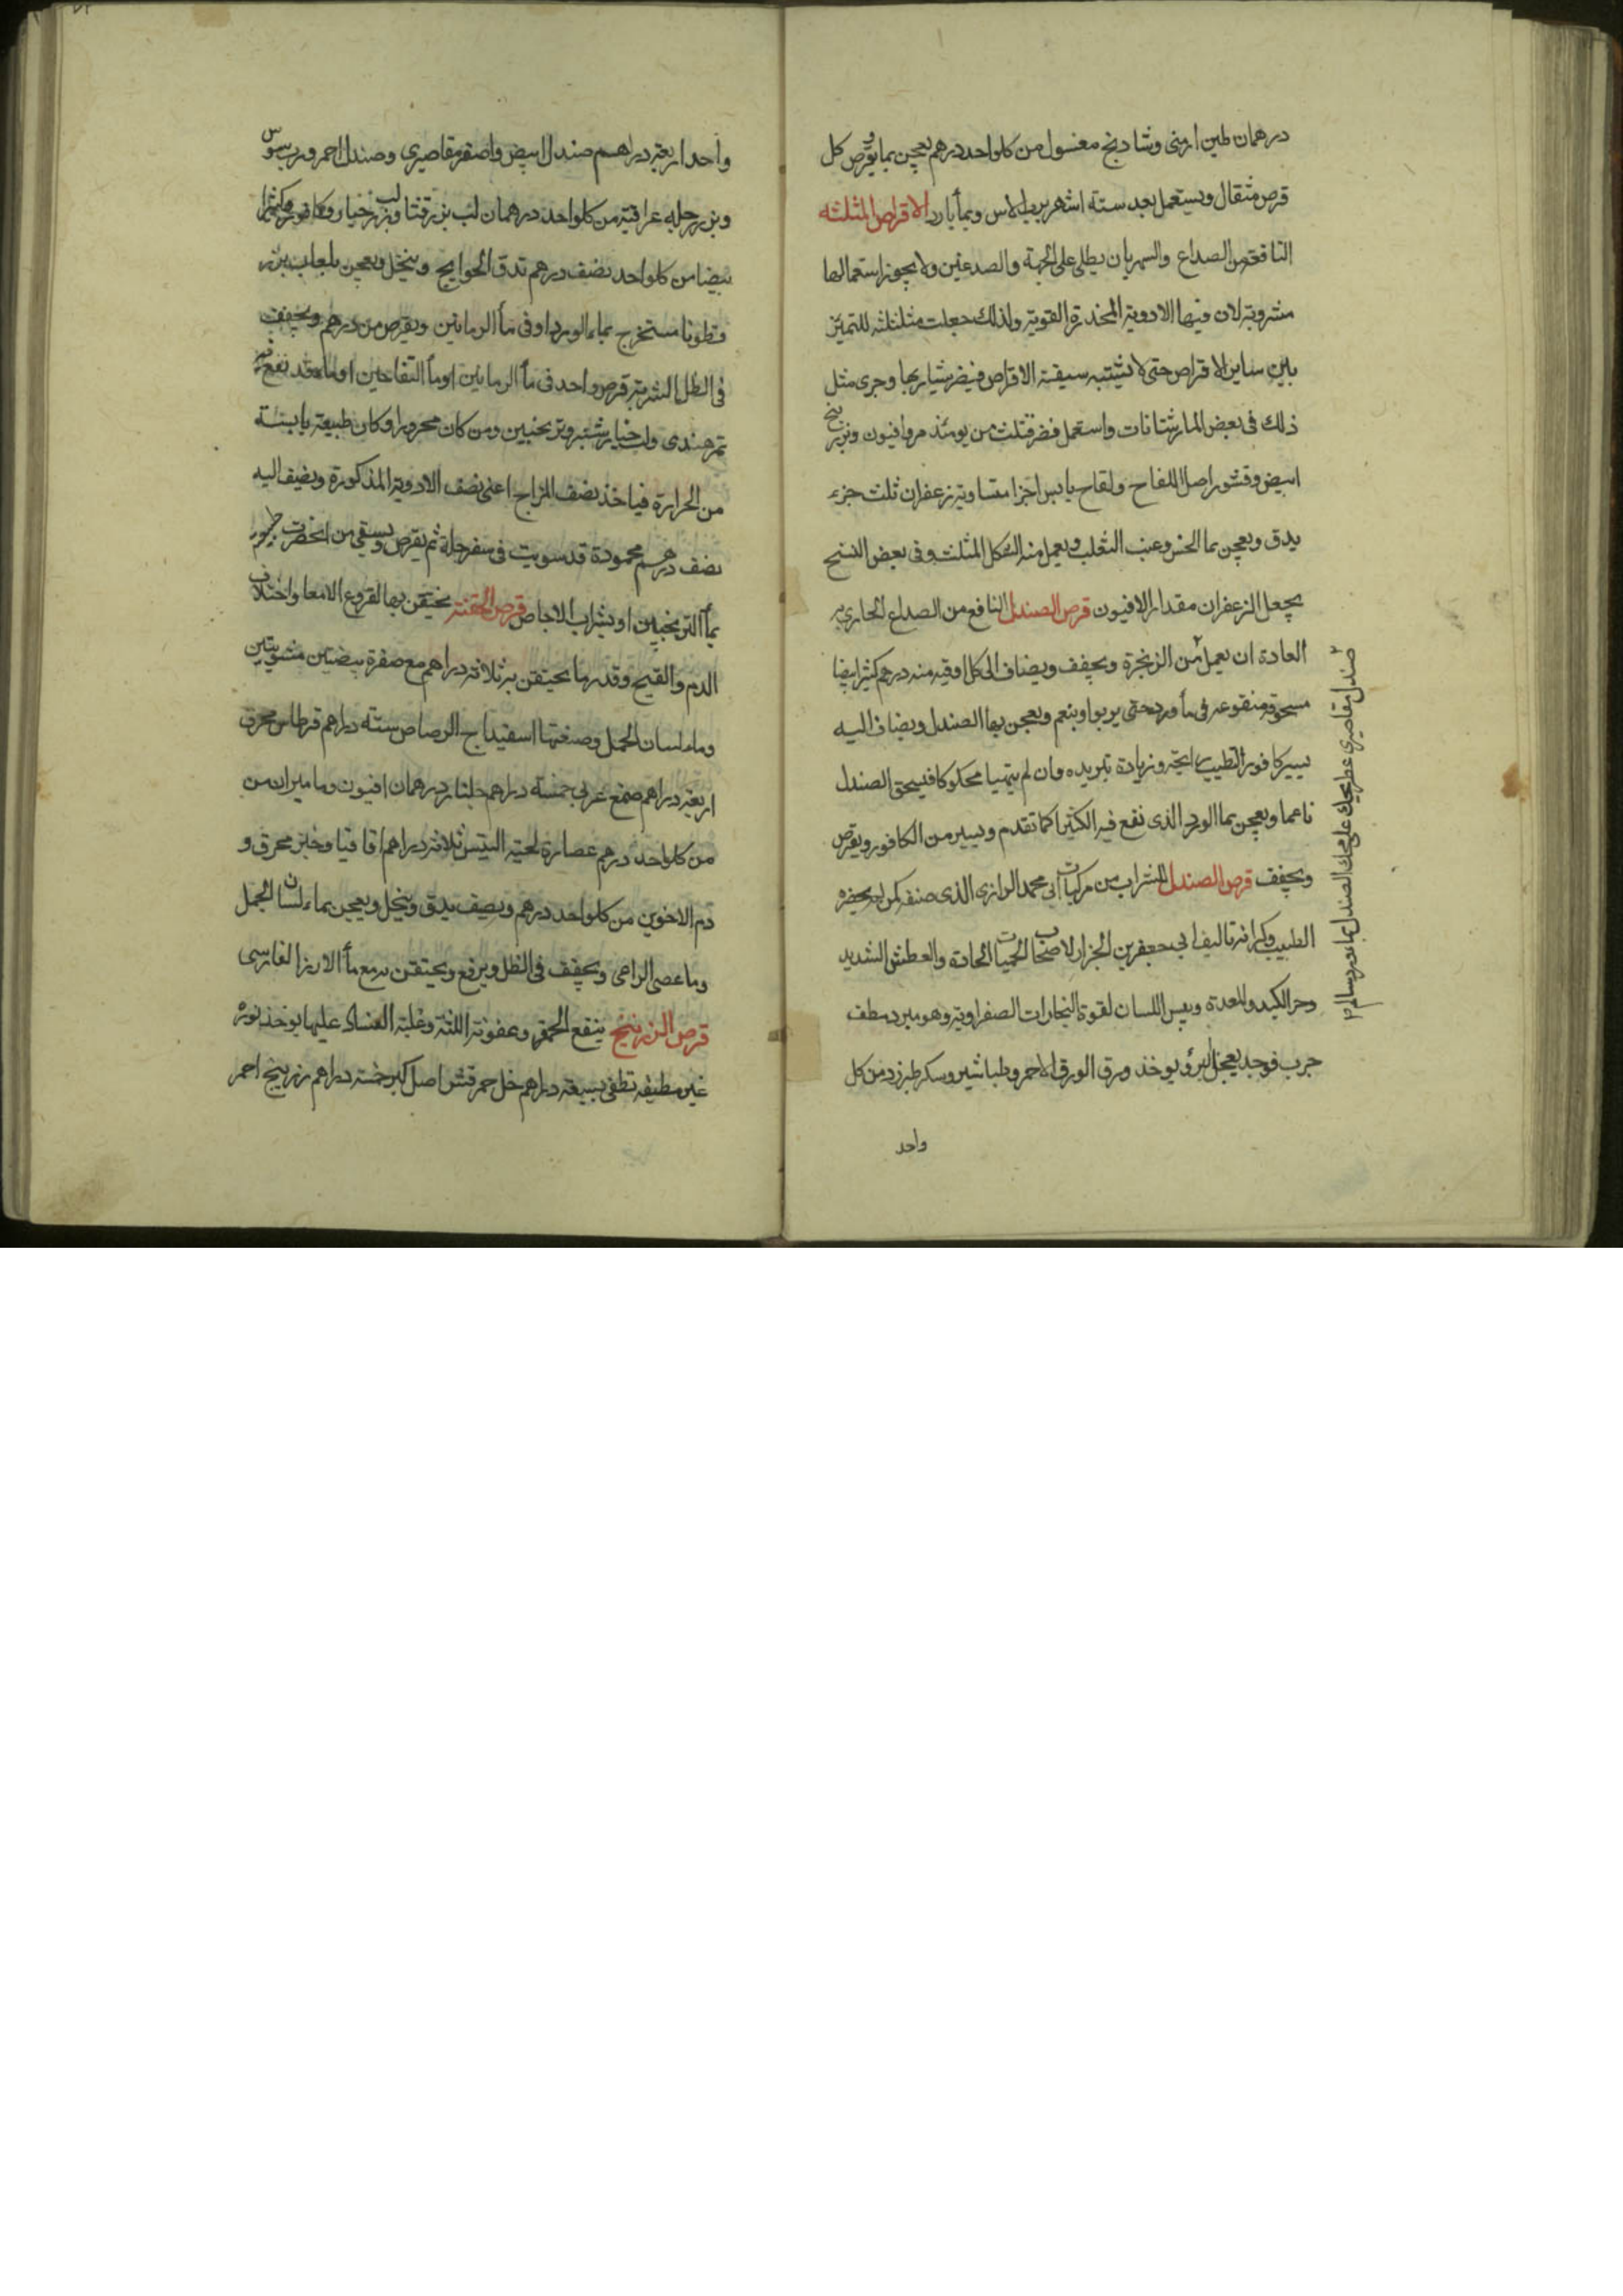 درهمان طين ارمنى وشادنج مغسول من كل واحد درهم يعجن بما ويقرص كل
قرص مثقال ويستعمل بعد ستة اشهر برب الاس وبمأ بارد الاقراص المثلثه
النافعة من الصداع والسهر بان يطلى على الجبهة والصدغين ولا يجوز استعمالها
مشروبة لان فيها الادوية المخدرة القوية ولذلك جعلت مثلثلثه للتميز
بين ساير الاقراص حتى لا تشتبه ببقية الاقراص فيضر شاربها وجرى مثل
ذلك فى بعض المارستانات واستعمل فضر فثلث من يومئذ مر وافيون وبزر بنج
ابيض وقشور اصل اللفاح ولقاح يابس اجزا متساوية زعفران ثلث جزء
يدق ويعجن بما الخس وعنب الثعلب ويعمل منه الشكل المثلث وفى بعض النسخ
يجعل الزعفران مقدار الافيون قرص الصندل النافع من الصداع الجارى به
العادة ان يعمل من الزنجرة ويجفف ويضاف الى كل اوقيه منه درهم كثيرا بيضا
مسحوقه منقوعه فى مأ ورد حتى يربوا وينعم ويعجن بها الصندل ويضاف اليه
يسير كافور لتطييب رايحته وزيادة تبريده وان لم يتهيا محكوكا فيسحق الصندل
ناعما ويعجن بما الورد الذى نقع فيه الكثيرا كما تقدم ويسير من الكافور ويقرص
ويجفف قرص الصندل للشراب من مركبات ابى محمد الرازى الذى صنفه لمن لم يحضره
الطبيب وكرا نه تاليف ابى جعفر بن الجزار لاصحاب الحميات الحادة والعطش الشديد
وحر الكبد والمعدة ويبس اللسان لقوة البخارات الصفراوية وهو مبرد مطف
جرب فوجد يعجل البرؤ يوخذ ورق الورق الاحمر وطباشير وسكر طبرزد من كل
واحد
صندل مقاصيرى عطر يحك على محك الصندل بماء ورد
واحد اربعة دراهم صندل ابيض واصفر مقاصيرى وصندل احمر ورب سوس
وبزر رجله عراقية من كل واحد درهمان لب بزر قثا ولب بزر خيار وكافور وكثيرا
بيضا من كل واحد نصف درهم تدق الحوايج وينخل ويعجن بلعاب بزر
قطونا مستخرج بماء الورد او فى مأ الرمانين ويقرص من درهم ويجفف
فى الظل الشربة قرص واحد فى مأ الرمانين او مأ التفاحين او ماء قد نقع فيه
تمر هندى ولب خيار شنبر وترنجبين ومن كان محرورا وكان طبيعته يابسة
من الحرارة فياخذ نصف المزاج اعنى نصف الادوية المذكورة ويضيف اليه
نصف درهم محمودة قد سويت فى سفرجلة ثم يقرص ويسقى من
بمأ الترنجبين او بشراب الاجاص قرص الحقنة يحتقن بها لقروع الامعا واختلاف
الدم والقيح وقدر ما يحتقن به ثلاثة دراهم مع صفرة بيضتين مشويتين
وماء لسان الحمل وصنعتها اسفيداج الرصاص ستة دراهم قرطاس محرق
اربعة دراهم صمغ عربى خمسة دراهم جلنار درهمان افيون وماميران من
من كل واحد درهم عصارة لحية التيس ثلاثة دراهم اقاقيا وخبز محرق و
دم الاخوين من كل واحد درهم ونصف يدق وينخل ويعجن بماء لسان الجمل
وما عصى الراعى ويجفف فى الظل ويرفع ويحتقن به مع مأ الارز الفارسى
قرص الزرنيخ ينفع الحمقر وعفونة اللثة وغلبة الفساد عليها يوخذ نورة
غير مطيفه تطفى بسبعة دراهم خل خمر قشر اصل كبر خمسة دراهم زرنيخ احمر